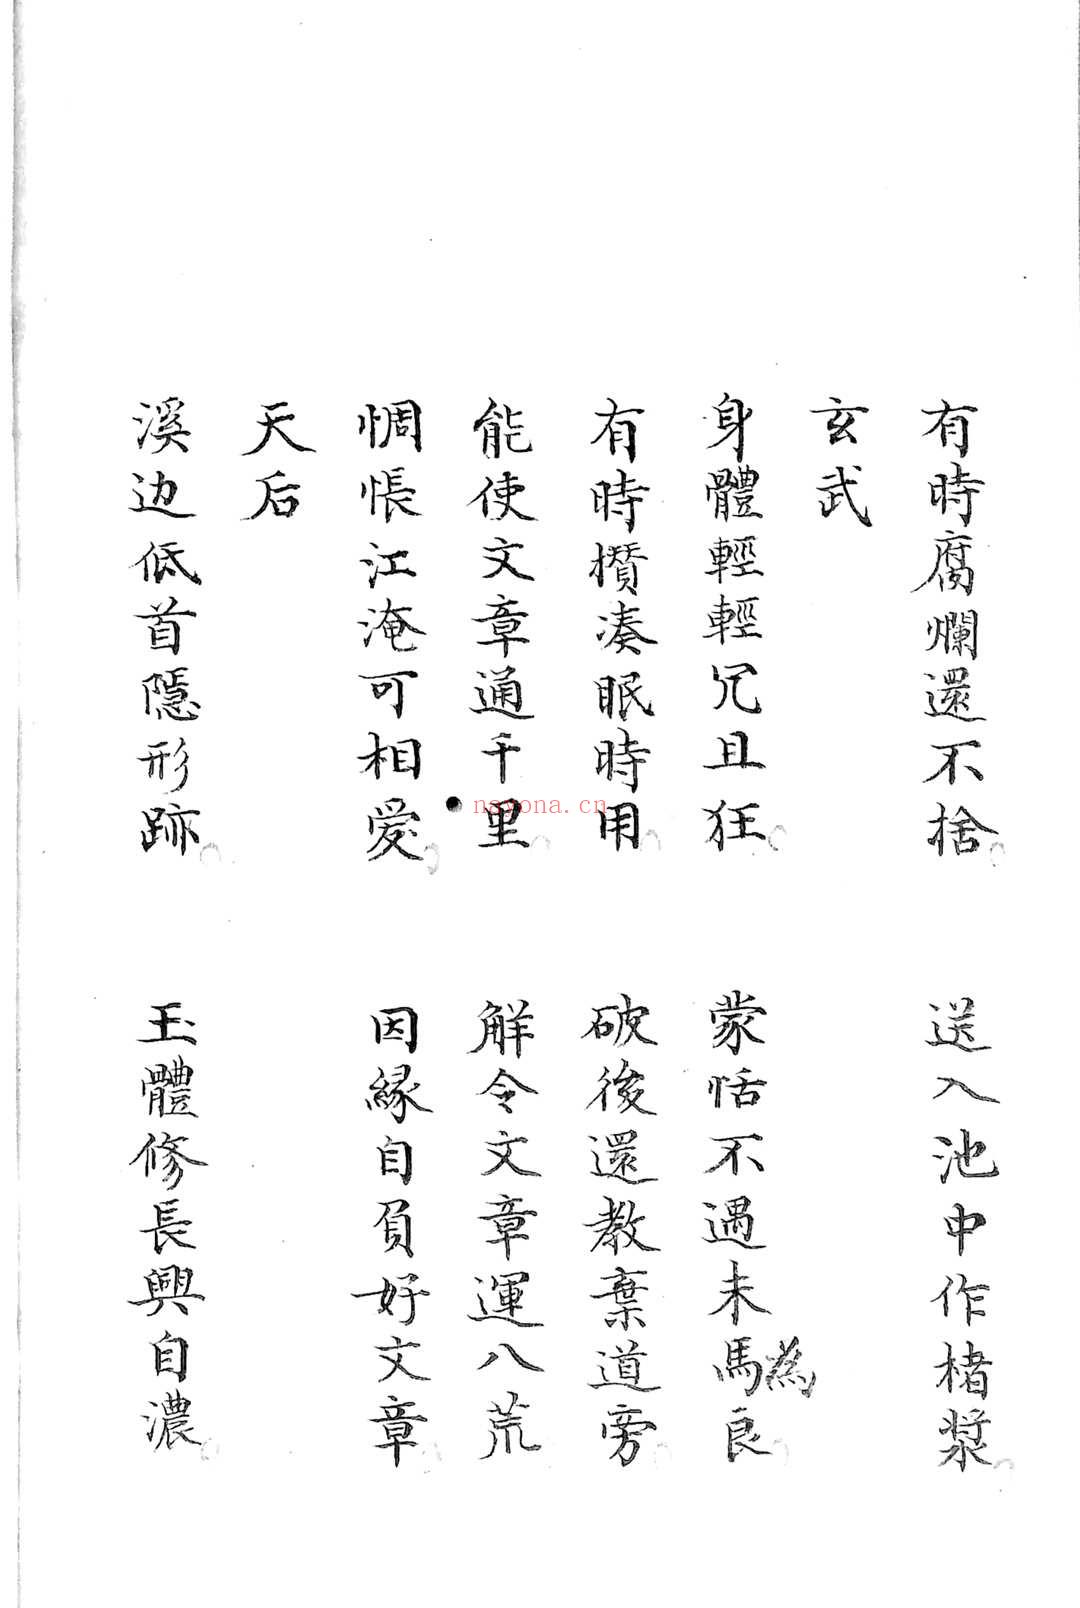 有時腐爛還不捨 送入池中作楮漿
玄武
身體輕輕冗且狂 蒙恬不遇未馬良
為
有時攢湊眠時用 破後還教棄道旁
能使文章通千里 解令文章運八荒
惆悵江淹可相愛 因緣自負好文章
天后
溪边低首隱形跡 玉體修長興自濃
nayona.cn